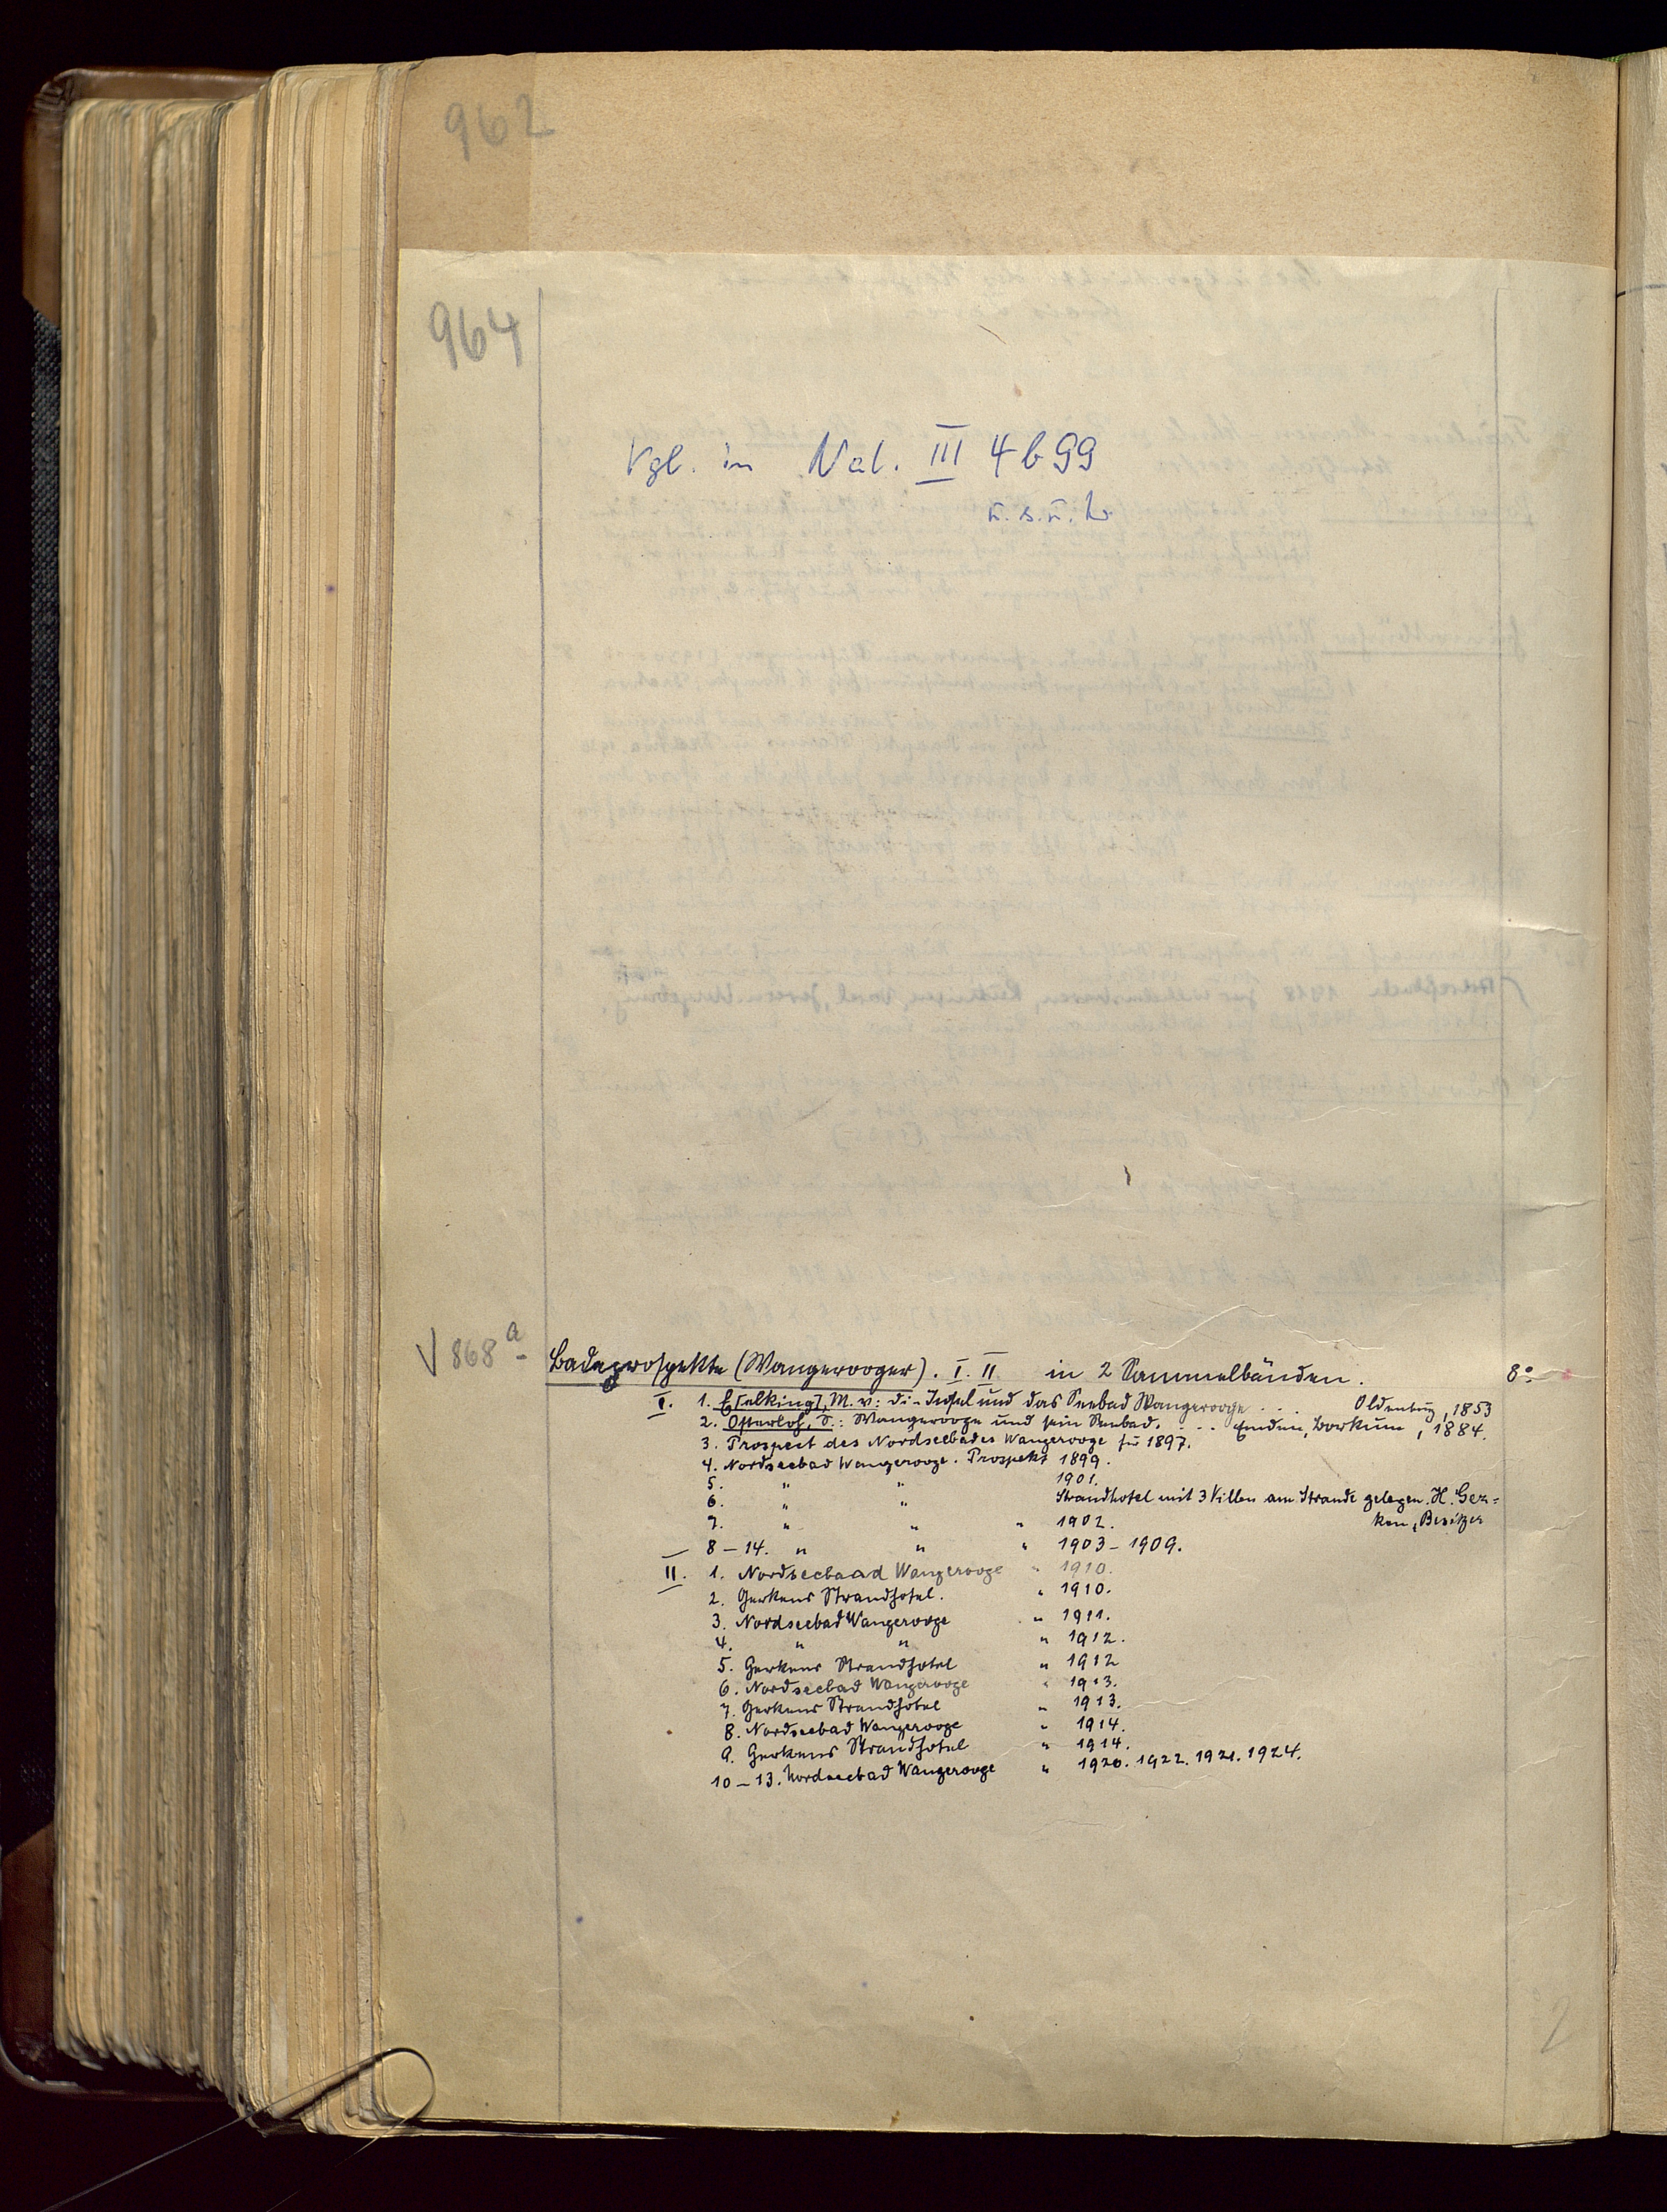 962
964
Vgl. in Nal. III 4b99
u. s. u. L.
V 868 a
Badeprospekte (Wangerooger). I. II in 2 Sammelbänden. 8°
I. 1. E[elking], M. v: Die Insel und das Seebad Wangerooge . . . Oldenburg, 1853
2. Osterloh, S.: Wangerooge und sein Seebad. . . . Emden, Borkum, 1884.
3. Prospect des Nordseebades Wangerooge für 1897.
4. Nordseebad Wangerooge. Prospekt 1899.
5. " " 1901.
6. " " Strandhotel mit 3 Villen am Strande gelegen. H. Ger=
ken, Besitzer
7. " " " 1902.
8–14. " " " 1903–1909.
II. 1. Nordseebaad Wangerooge " 1910.
2. Gerkens Strandhotel. " 1910.
3. Nordseebad Wangerooge " 1911.
4. " " " 1912.
5. Gerkens Strandhotel " 1912
6. Nordseebad Wangerooge " 1913.
7. Gerkens Strandhotel " 1913.
8. Nordseebad Wangerooge " 1914.
9. Gerkens Strandhotel " 1914.
10–13. Nordseebad Wangerooge " 1920. 1922. 1921. 1924.
2